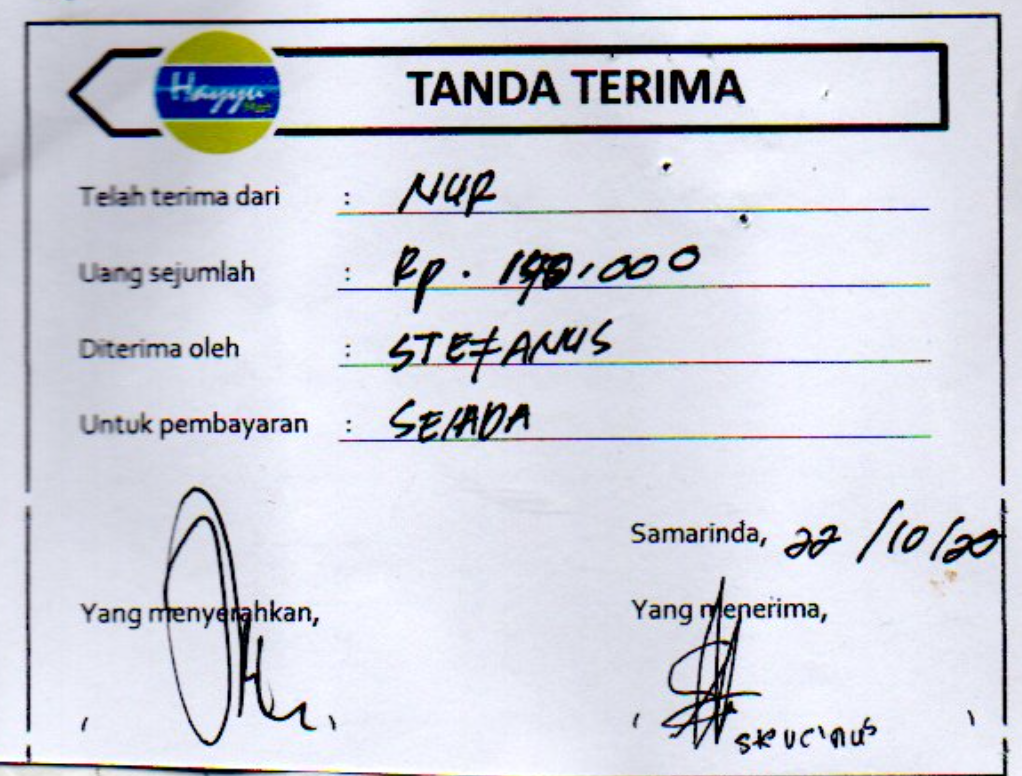 Hayyu Mart
TANDA TERIMA
Telah terima dari : NUR
Uang sejumlah : Rp. .000
Diterima oleh : STEFANUS
Untuk pembayaran : SELADA
Samarinda, 22/10/20
Yang menyerahkan,
Yang menerima,